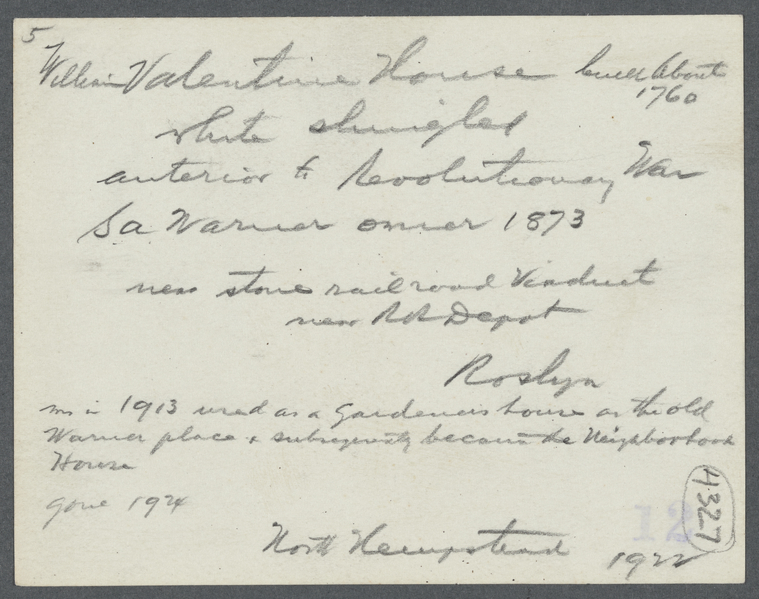 5
William Valentine House built About
1760
white shingled
anterior to Revolutionary War
S a Warner owner 1873
near stone railroad Viaduct
near RR Depot
Roslyn
in 1913 used as a Gardeners house on the old
Warner place + subsequently became the Neighborhood
House
gone 1924
12
4327
North Hempstead 1922